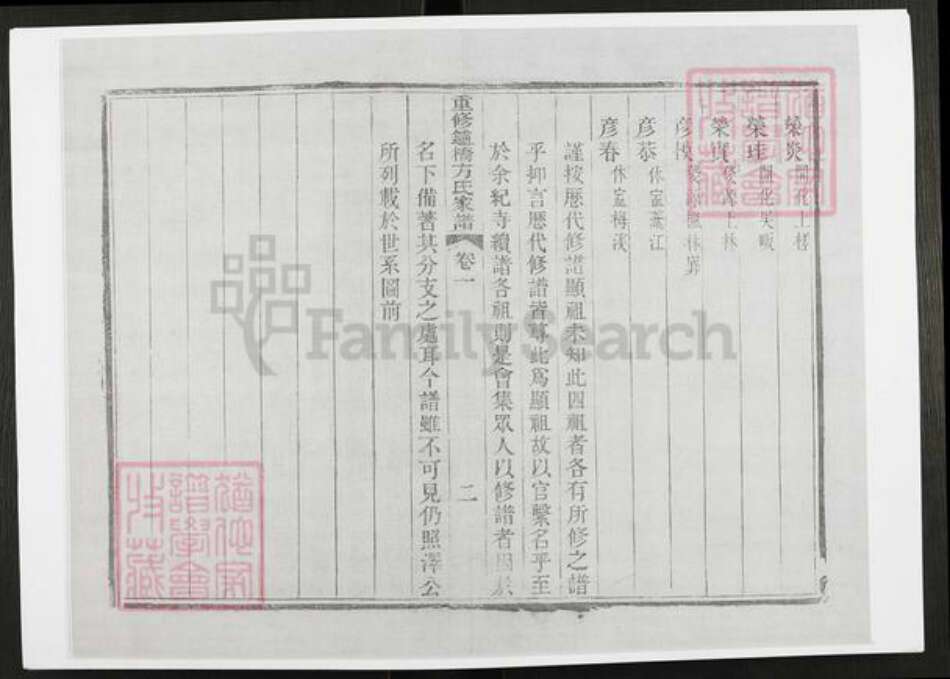 榮炎 開化上槎
榮珪 開化吳畈
榮寶 婺源上林
彥 婺源 林
彥恭 休寧 江
彥春 休寧梅溪
謹按歷代修譜顯祖未知此四祖者各有所修之譜
乎抑言歷代修譜皆尊此爲顯祖故以官繫名乎至
於余紀寺續譜各祖則是會集眾人以修譜者因於
重修 橋方氏家譜 卷一 二
名下備著其分支之處耳今譜雖不可見仍照澤公
所列載於世系圖前
FamilySearch